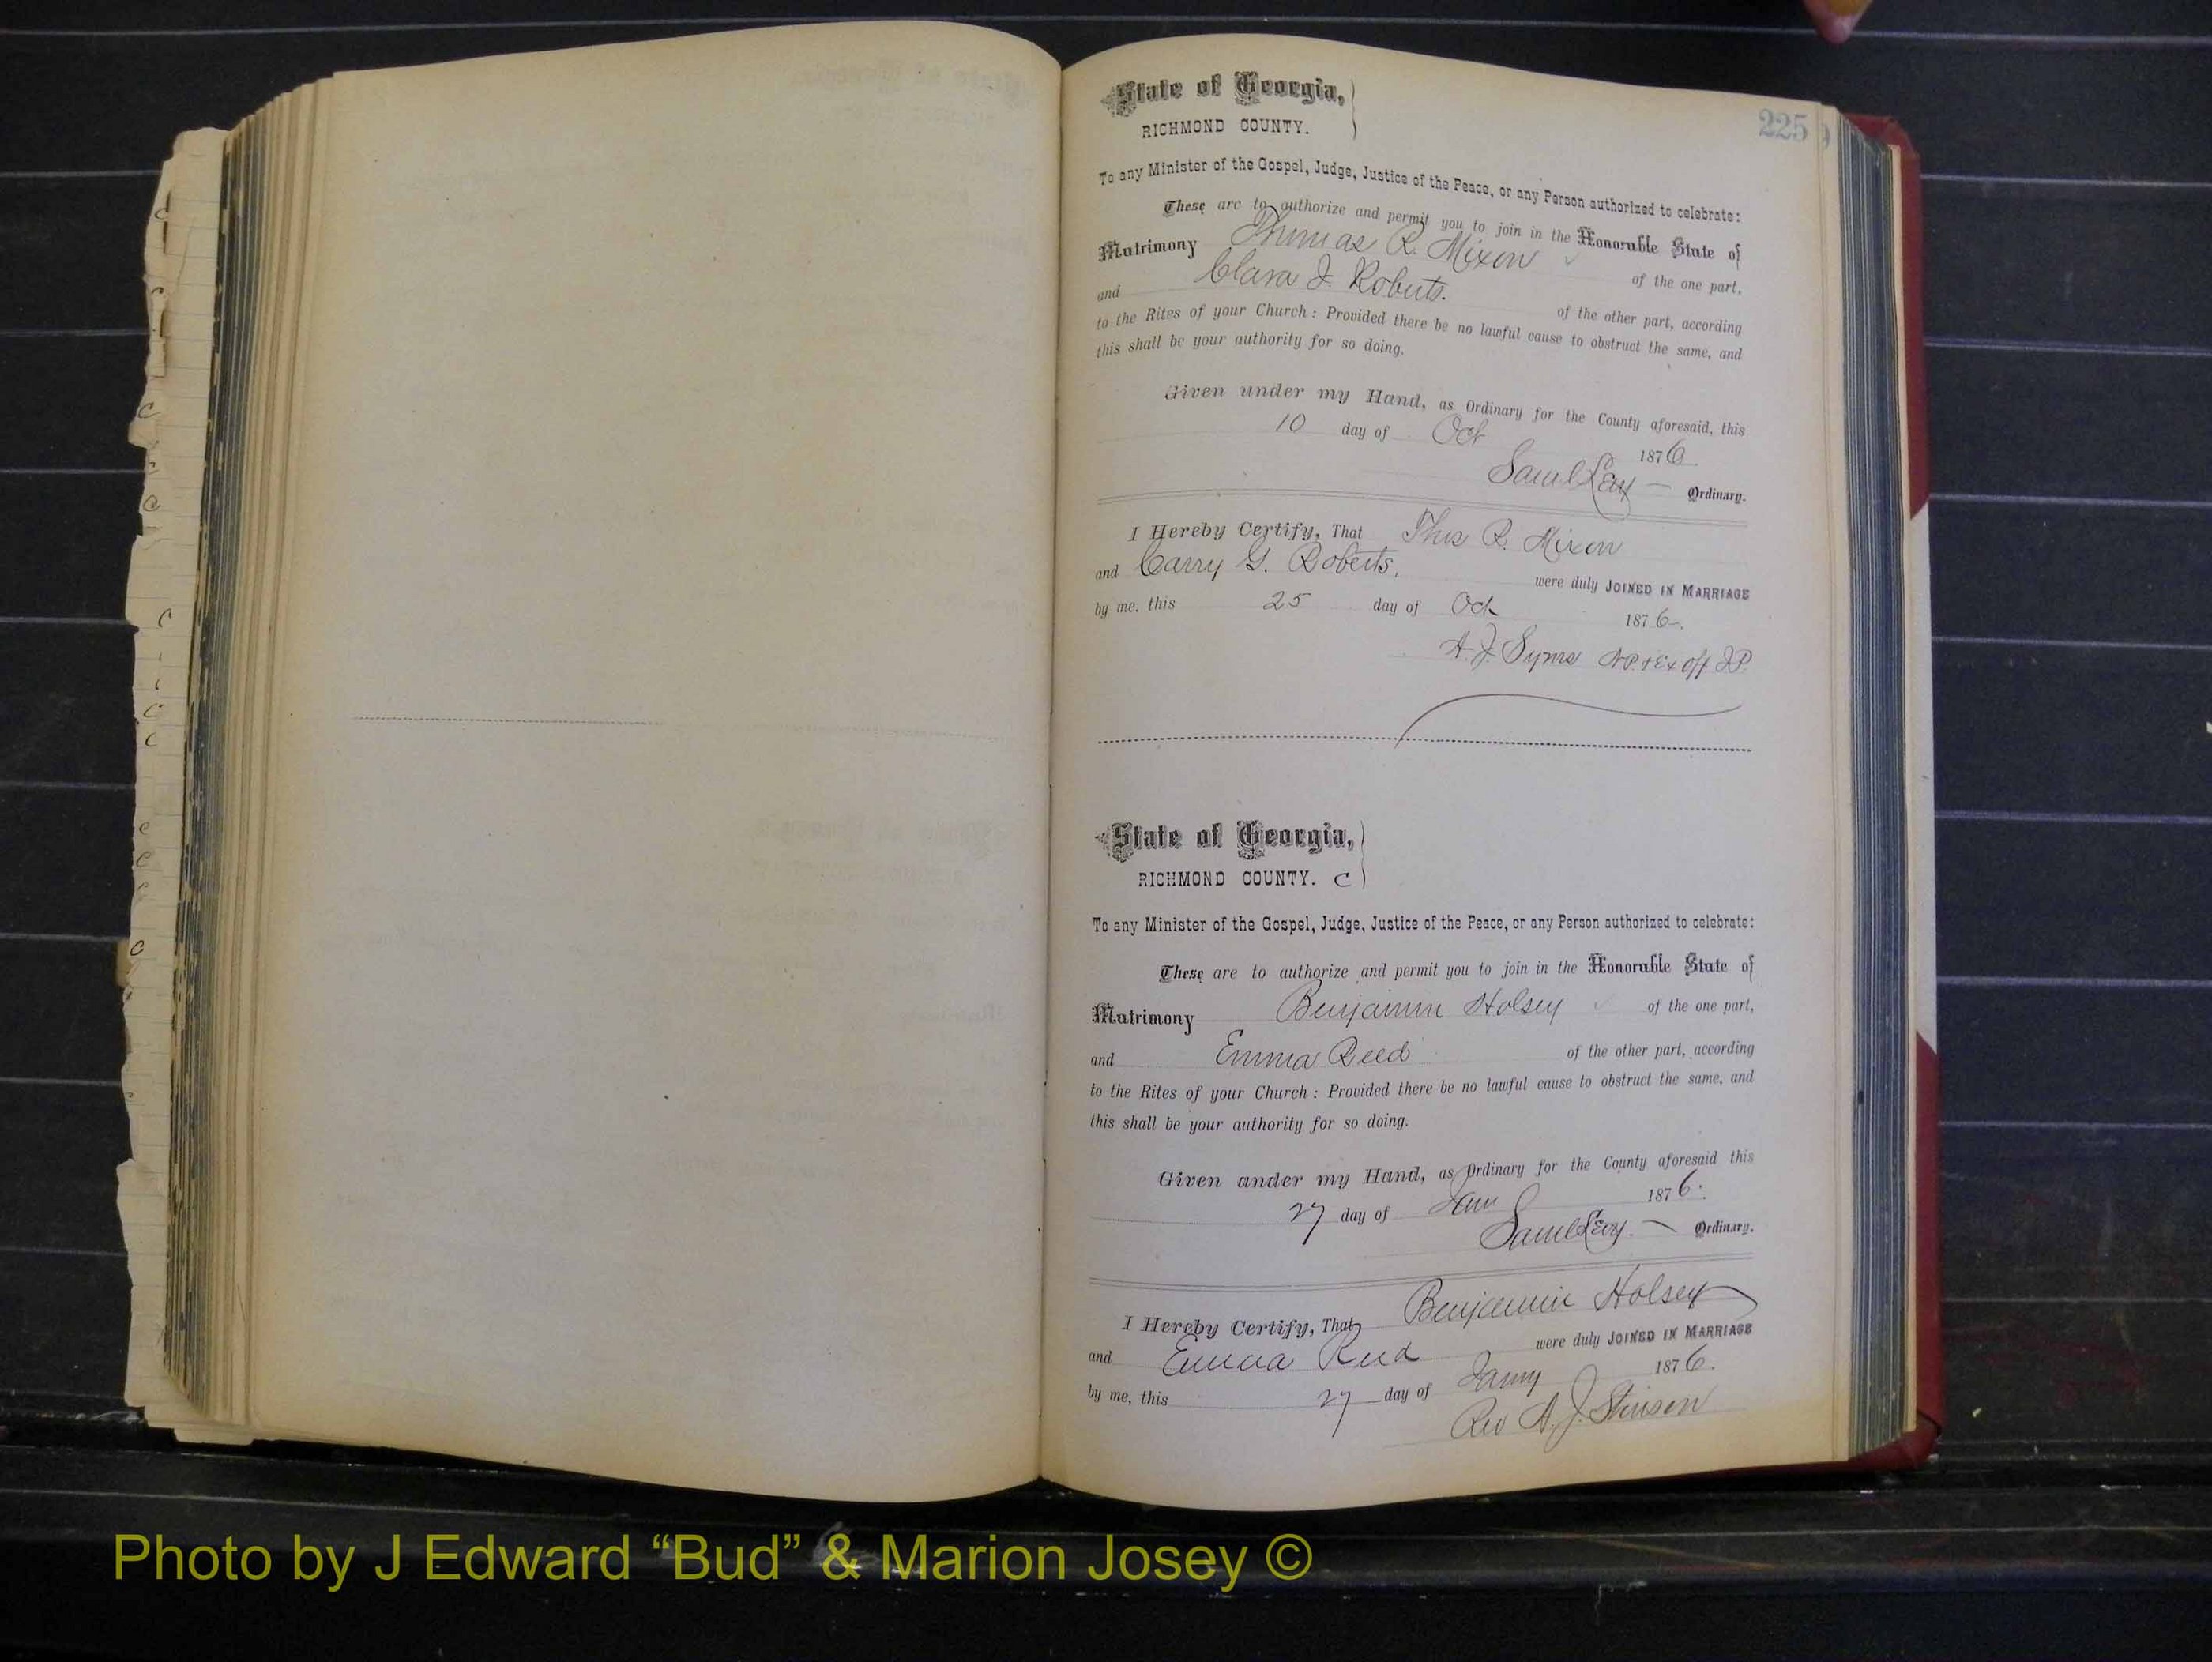 225
State of Georgia,
RICHMOND COUNTY.
To any Minister of the Gospel, Judge, Justice of the Peace, or any Person authorized to celebrate:
These are to authorize and permit you to join in the Honorable State of
Matrimony Thomas R. Mixon of the one part,
and Clara J. Roberts. of the other part, according
to the Rites of your Church: Provided there be no lawful cause to obstruct the same, and
this shall be your authority for so doing.
Given under my Hand, as Ordinary for the County aforesaid, this
10 day of Oct 1876
Saml Levy — Ordinary.
I Hereby Certify, That Thos R. Mixon
and Carry G. Roberts, were duly JOINED IN MARRIAGE
by me, this 25 day of Oct 1876.
A. J. Syms NP. + Ex off J.P.
State of Georgia,
RICHMOND COUNTY. C
To any Minister of the Gospel, Judge, Justice of the Peace, or any Person authorized to celebrate:
These are to authorize and permit you to join in the Honorable State of
Matrimony Benjamin Holsey of the one part,
and Emma Reed of the other part, according
to the Rites of your Church: Provided there be no lawful cause to obstruct the same, and
this shall be your authority for so doing.
Given under my Hand, as Ordinary for the County aforesaid this
27 day of Jany 1876.
Saml Levy — Ordinary.
I Hereby Certify, That Benjamin Holsey
and Emma Reed were duly JOINED IN MARRIAGE
by me, this 27 day of Jany 1876.
Rev A. J. Stinson
Photo by J Edward “Bud” & Marion Josey ©